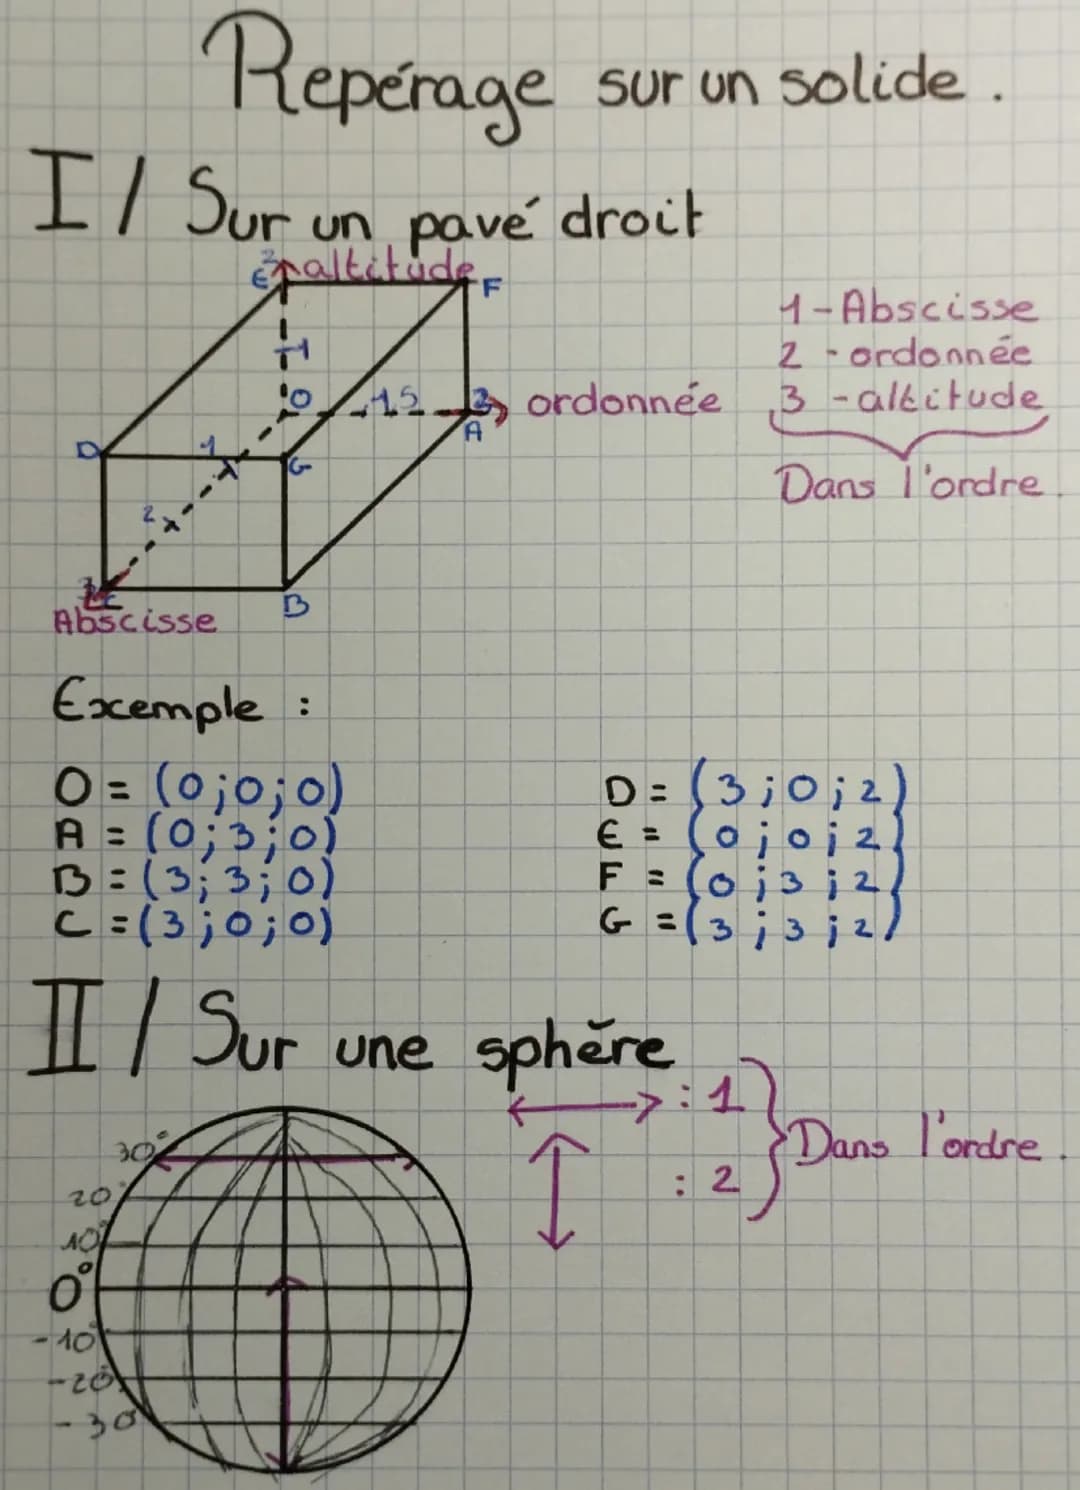 Repérage sur un solide.
I / Sur un pavé droit
2 altitude
E
F
1
O
1,5
3 ordonnée
A
D
1
G
2
3 C
Abscisse
B
1 - Abscisse
2 - ordonnée
3 - altitude
Dans l'ordre.
Exemple :
O = (0;0;0)
A = (0;3;0)
B = (3;3;0)
C = (3;0;0)
D = (3;0;2)
E = (0;0;2)
F = (0;3;2)
G = (3;3;2)
II / Sur une sphère
: 1
: 2
Dans l'ordre.
30°
20°
10°
0°
-10°
-20°
-30°